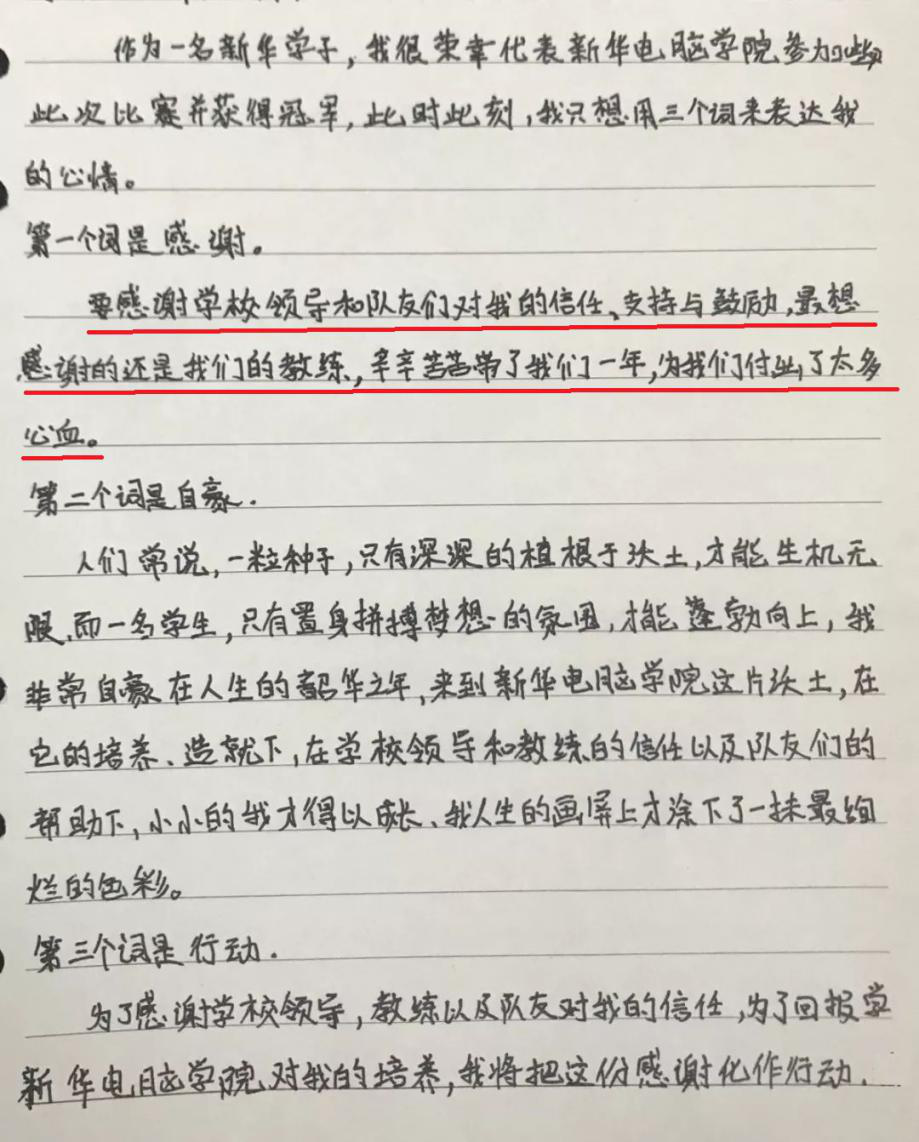 作为一名新华学子，我很荣幸代表新华电脑学院参加
此次比赛并获得冠军，此时此刻，我只想用三个词来表达我
的心情。
第一个词是感谢。
要感谢学校领导和队友们对我的信任、支持与鼓励，最想
感谢的还是我们的教练，辛辛苦苦带了我们一年，为我们付出了太多
心血。
第二个词是自豪.
人们常说，一粒种子，只有深深的植根于沃土，才能生机无
限，而一名学生，只有置身拼搏梦想的氛围，才能蓬勃向上，我
非常自豪在人生的韶华之年，来到新华电脑学院这片沃土，在
它的培养、造就下，在学校领导和教练的信任以及队友们的
帮助下，小小的我才得以成长、我人生的画屏上才涂下了一抹最绚
烂的色彩。
第三个词是行动.
为了感谢学校领导，教练以及队友对我的信任，为了回报学
新华电脑学院对我的培养，我将把这份感谢化作行动.